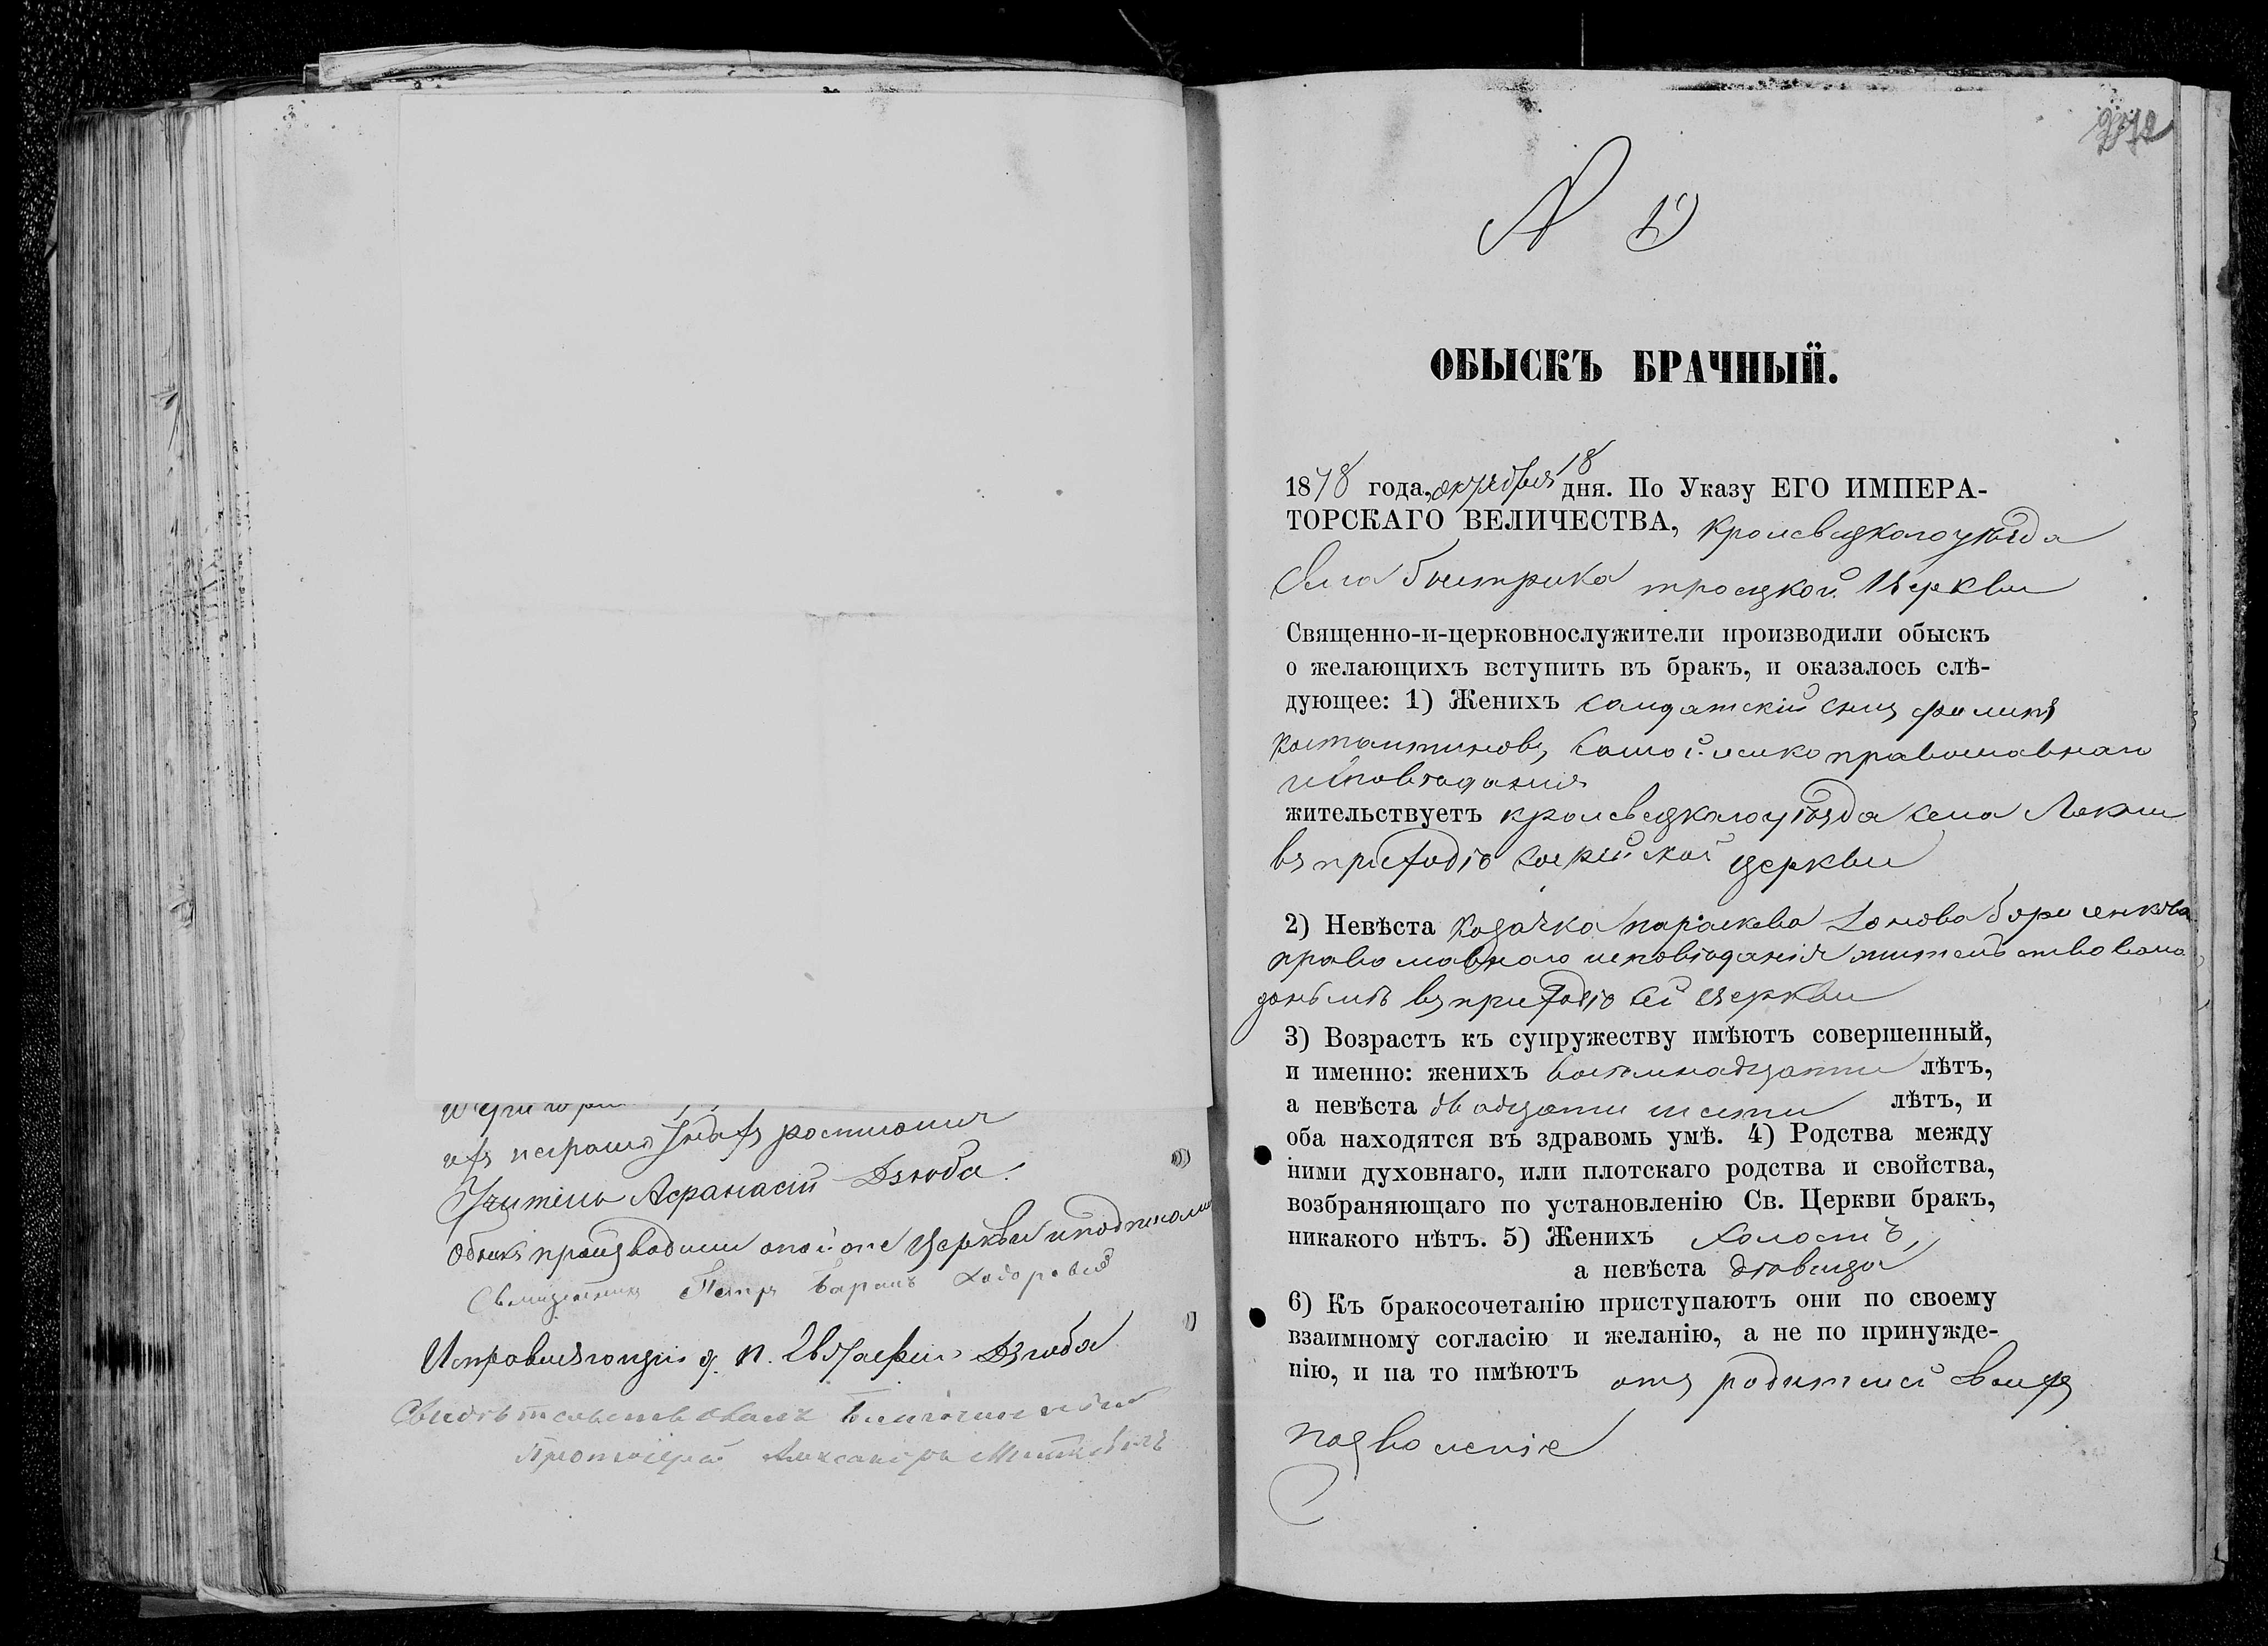 ихъ неграмотныхъ росписался
Учитель Афанасій Дзюба.
Обыскъ производили оной же церкви и подписали
Священникъ Петръ
Исправляющій д. п. Евстафій Дзюба
Свидѣтельствовалъ Благочинный
Протоіерей Александръ
N
ОБЫСКЪ БРАЧНЫЙ.
1878 года, октября 18 дня. По Указу ЕГО ИМПЕРА-
ТОРСКАГО ВЕЛИЧЕСТВА, Кролевецкого уѣзда
Села быстрика троецкой Церкви
Священно-и-церковнослужители производили обыскъ
о желающихъ вступить въ бракъ, и оказалось слѣ-
дующее: 1) Женихъ Салдатскій сынъ филипъ
Костантиновъ Самойленко православнаго
исповѣданія
жительствуетъ кролевецкого уѣзда села
въ приходѣ церкви
2) Невѣста Козачка параскева борисенкова
православного исповѣданія жительствовала
донынѣ въ приходѣ сей Церкви
3) Возрастъ къ супружеству имѣютъ совершенный,
и именно: женихъ восемнадцати лѣтъ,
а невѣста двадцати шести лѣтъ, и
оба находятся въ здравомъ умѣ. 4) Родства между
ними духовнаго, или плотскаго родства и свойства,
возбраняющаго по установленію Св. Церкви бракъ,
никакого нѣтъ. 5) Женихъ Холостъ,
а невѣста дѣвица
6) Къ бракосочетанію приступаютъ они по своему
взаимному согласію и желанію, а не по принужде-
нію, и на то имѣютъ отъ родителей своихъ
позволеніе